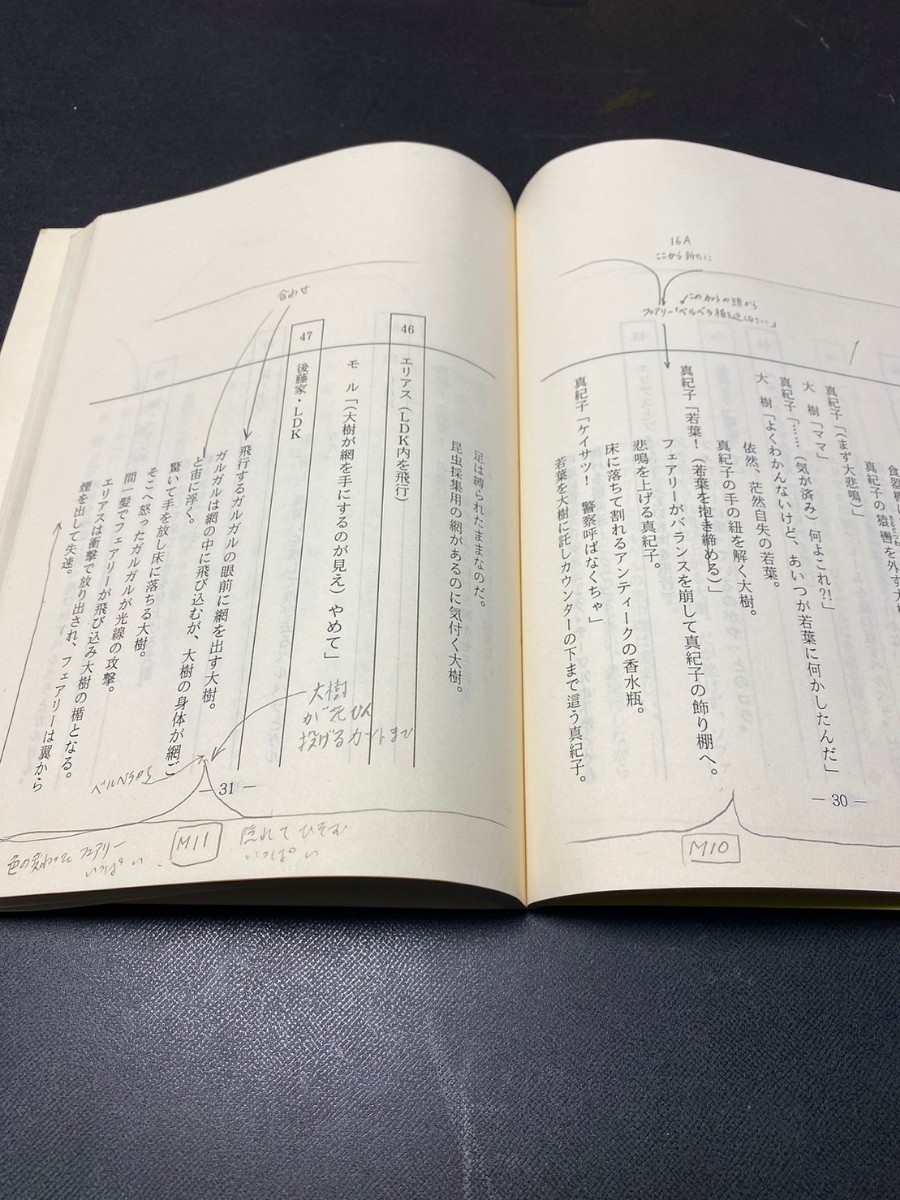 食器棚
真紀子の猿轡を外す大
真紀子「(まず大悲鳴)」
大 樹「ママ」
真紀子「……(気が済み)何よこれ?!」
大 樹「よくわかんないけど、あいつが若葉に何かしたんだ」
依然、茫然自失の若葉。
真紀子の手の紐を解く大樹。
真紀子「若葉!(若葉を抱き締める)」
フェアリーがバランスを崩して真紀子の飾り棚へ。
悲鳴を上げる真紀子。
床に落ちて割れるアンティークの香水瓶。
真紀子「ケイサツ! 警察呼ばなくちゃ」
若葉を大樹に託しカウンターの下まで這う真紀子。
16A
ここから新たに
このカットの頭から
フェアリー「ベルベラ
M10
― 30 ―
足は縛られたままなのだ。
昆虫採集用の網があるのに気付く大樹。
46 エリアス(LDK内を飛行)
モ ル「(大樹が網を手にするのが見え)やめて」
47 後藤家・LDK
飛行するガルガルの眼前に網を出す大樹。
ガルガルは網の中に飛び込むが、大樹の身体が網ご
と宙に浮く。
驚いて手を放し床に落ちる大樹。
そこへ怒ったガルガルが光線の攻撃。
間一髪でフェアリーが飛び込み大樹の楯となる。
エリアスは衝撃で放り出され、フェアリーは翼から
煙を出して失速。
合わせ
大樹
投げるカットまで
M11
隠れてひそむ
いっぱい
色の変わった フェアリー
いっぱい
― 31 ―